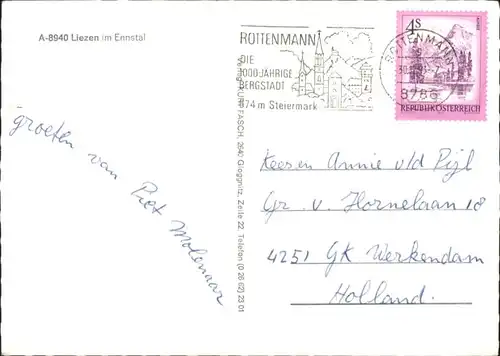 A-8940 Liezen im Ennstal
ROTTENMANN
DIE
2000JÄHRIGE
BERGSTADT
674 m Steiermark
4S
REPUBLIK ÖSTERREICH
ROTTENMANN
8786
groeten van Piet Molenaar
FASCH, 2640 Gloggnitz, Zeile 22, Telefon (0 26 62) 23 01
Kees en Annie v/d Pijl
Gr. v. Hornelaan 18
4251 GK Werkendam
Holland.